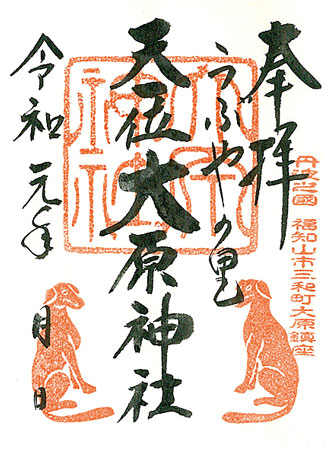 奉拝
丹波之國 福知山市三和町大原鎮座
うぶやの里
天一位大原神社
令和元年 月 日